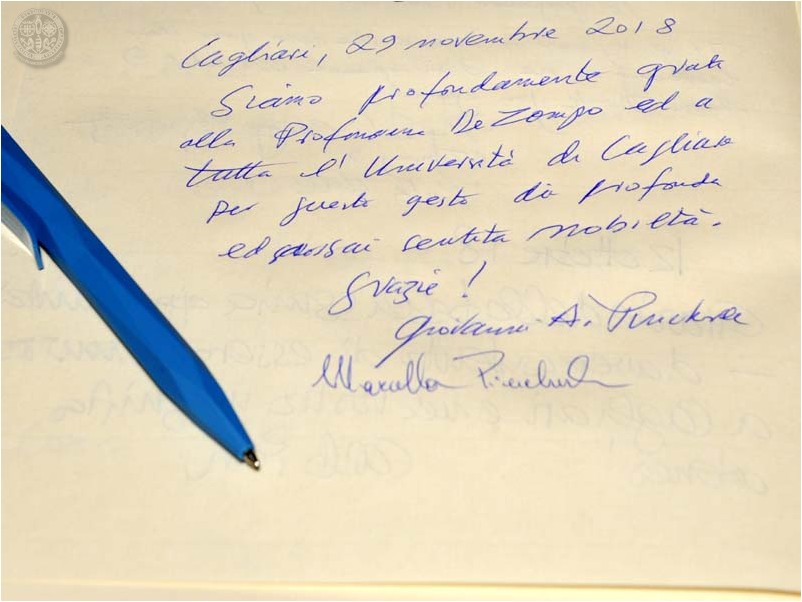 Cagliari, 29 novembre 2018
Siamo profondamente grati
alla Professoressa De Zompo ed a
tutta l'Università di Cagliari
per questo gesto di profonda
ed assai sentita nobiltà.
Grazie!
Giovanni A.